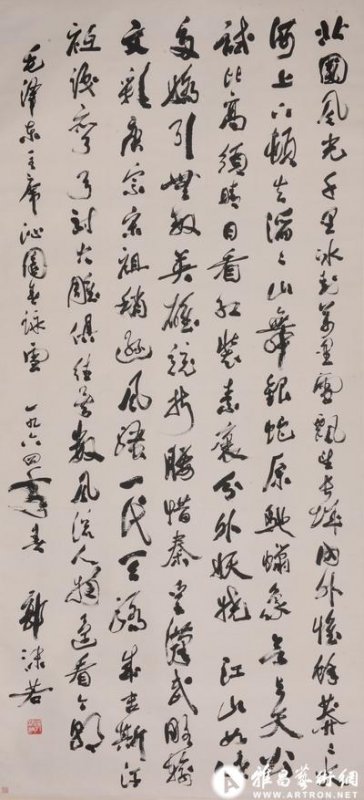 北國風光千里冰封萬里雪飄望長城内外惟餘莽々大
河上下頓失滔々山舞銀蛇原馳蠟象欲與天公
試比高須晴日看紅裝素裹分外妖嬈 江山如此
多嬌引無數英雄競折腰惜秦皇漢武略輸
文彩唐宗宋祖稍遜風騷一代天驕成吉斯汗
祇識彎弓射大雕俱往矣數風流人物還看今朝
毛澤東主席沁園春詠雪 一九六四年春 郭沫若
雅昌藝術網
WWW.ARTRON.NET